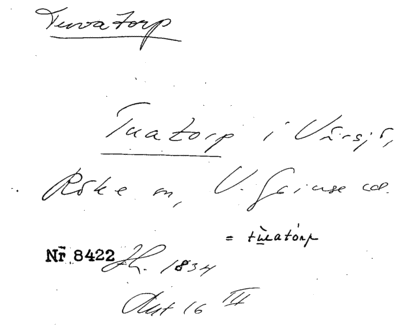 Tuvatorp
Tuatorp i Vårsjö,
Röke sn, V. Göinge hd.
= tùatårp
Nr 8422 Jh. 1834
Akt 16 III